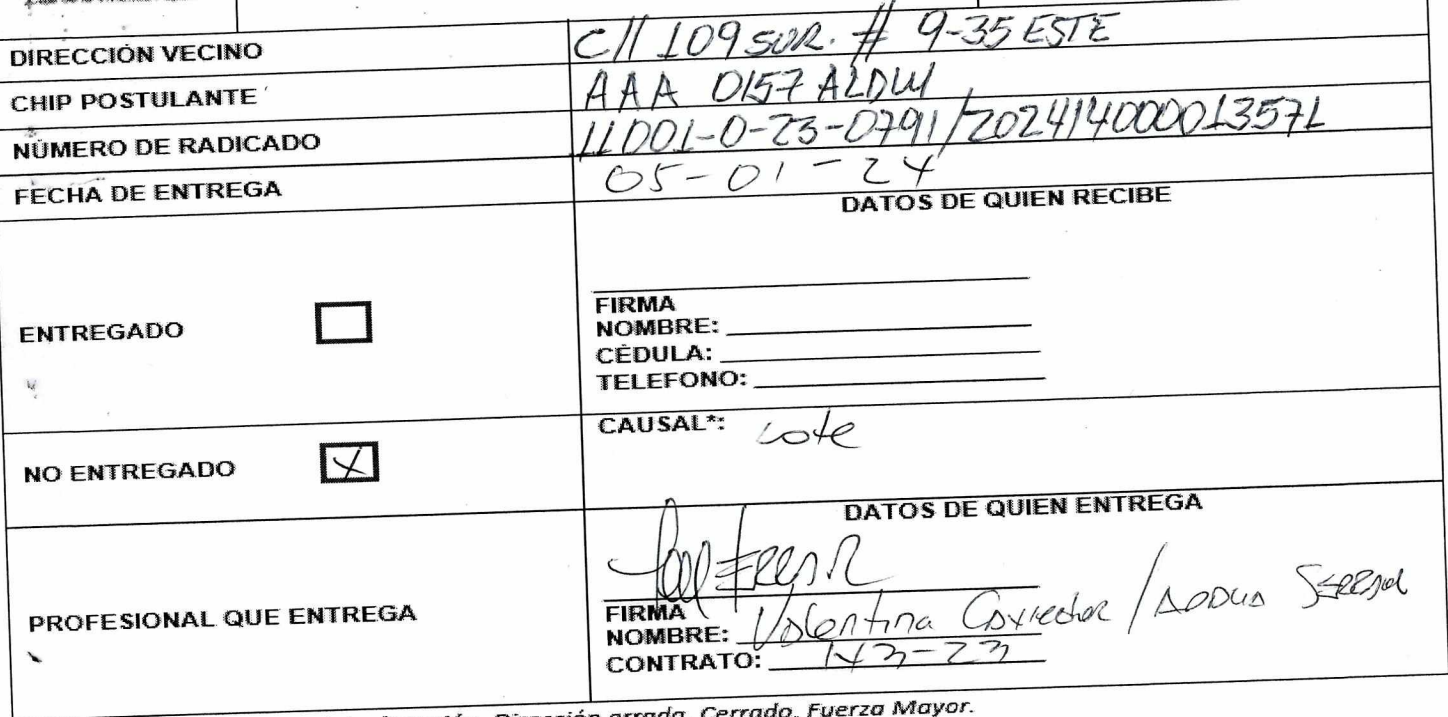 DIRECCIÓN VECINO Cll 109 SUR. # 9-35 ESTE
CHIP POSTULANTE AAA 0157 ALDW
NÚMERO DE RADICADO 11001-0-23-0791/202414000013571
FECHA DE ENTREGA 05-01-24
DATOS DE QUIEN RECIBE
ENTREGADO
FIRMA
NOMBRE:
CÉDULA:
TELEFONO:
NO ENTREGADO X
CAUSAL*: Lote
DATOS DE QUIEN ENTREGA
PROFESIONAL QUE ENTREGA
FIRMA
NOMBRE: Valentina Corredor /
CONTRATO: 143-23
Dirección errada, Cerrado, Fuerza Mayor.